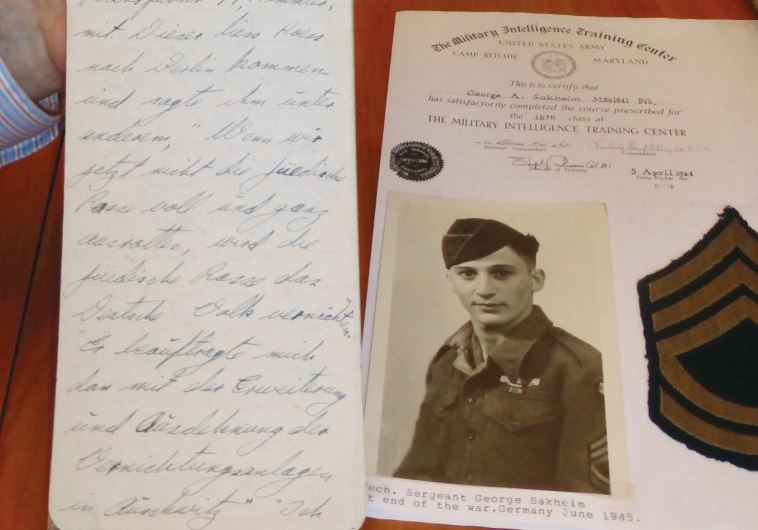 mit Dieser liess Hoess
nach Berlin kommen
und sagte ihm unter
anderem, "Wenn wir
jetzt nicht die juedische
Rasse voll und ganz
ausrotten, wird die
juedische Rasse das
Deutsche Volk vernichten"
"Er beauftragte mich
dan mit der Erweiterung
und Ausdehnung der
Vernichtungsanlagen
in Auschwitz" "Ich
The Military Intelligence Training Center
UNITED STATES ARMY
CAMP RITCHIE MARYLAND
This is to certify that
George A. Sakheim 32801641 Pfc,
has satisfactorily completed the course prescribed for
the 16th class at
THE MILITARY INTELLIGENCE TRAINING CENTER
Commandant
Director of Training
5 April 1944
Tech. Sergeant George Sakheim
t end of the war, Germany June 1945.